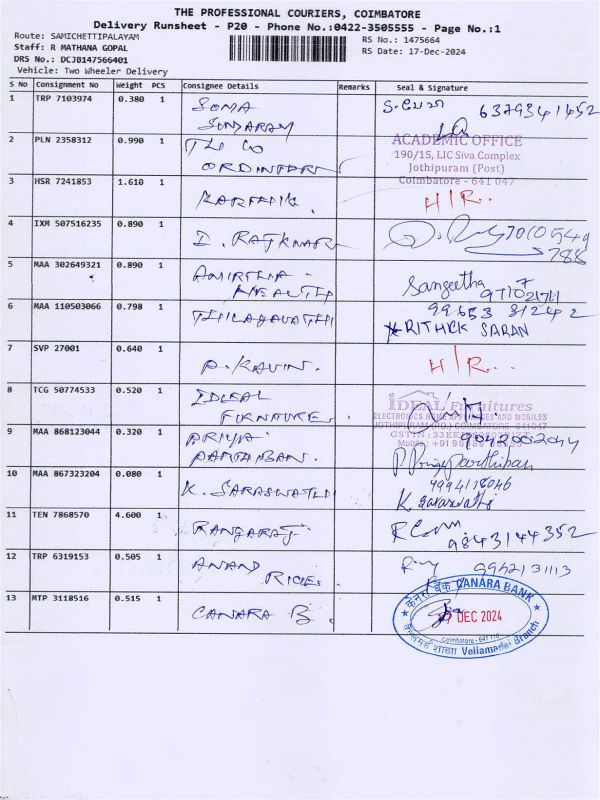 THE PROFESSIONAL COURIERS, COIMBATORE
Delivery Runsheet - P20 - Phone No.:0422-3505555 - Page No.:1
Route: SAMICHETTIPALAYAM
RS No.: 1475664
Staff: R MATHANA GOPAL
RS Date: 17-Dec-2024
DRS No.: DCJB147566401
Vehicle: Two Wheeler Delivery
S No Consignment No Weight PCS Consignee Details Remarks Seal & Signature
1 TRP 7103974 0.380 1 SOMA SUNDARAM 6379341452
2 PLN 2358312 0.990 1 THE CO
ACADEMIC OFFICE
190/15, LIC Siva Complex
Jothipuram (Post)
Coimbatore - 641 047
3 HSR 7241853 1.610 1 H/R..
4 IXM 507516235 0.890 1 D. RAJKUMAR
5 MAA 302649321 0.890 1 AMIRTHA HEALTH Sangeetha
6 MAA 110503066 0.798 1 THILAGAVATHI 99653 81242
RITHICK SARAN
7 SVP 27001 0.640 1 P. KAVIN. H/R..
8 TCG 50774533 0.520 1 IDEAL FURNITURE
IDEAL Furnitures
ELECTRONICS HOME APPLIANCES AND MOBILES
JOTHIPURAM (PO.) COIMBATORE 641047
9 MAA 868123044 0.320 1 PRIYA PARTHIBAN. P Priya parthiban
10 MAA 867323204 0.080 1 K. SARASWATHI
K Saraswathi
11 TEN 7868570 4.600 1 RANGARAJ. 9843144352
12 TRP 6319153 0.505 1 ANAND
13 MTP 3118516 0.515 1 CANARA B.
केनरा बैंक CANARA BANK
17 DEC 2024
Coimbatore - 641
Vellamadai Branch